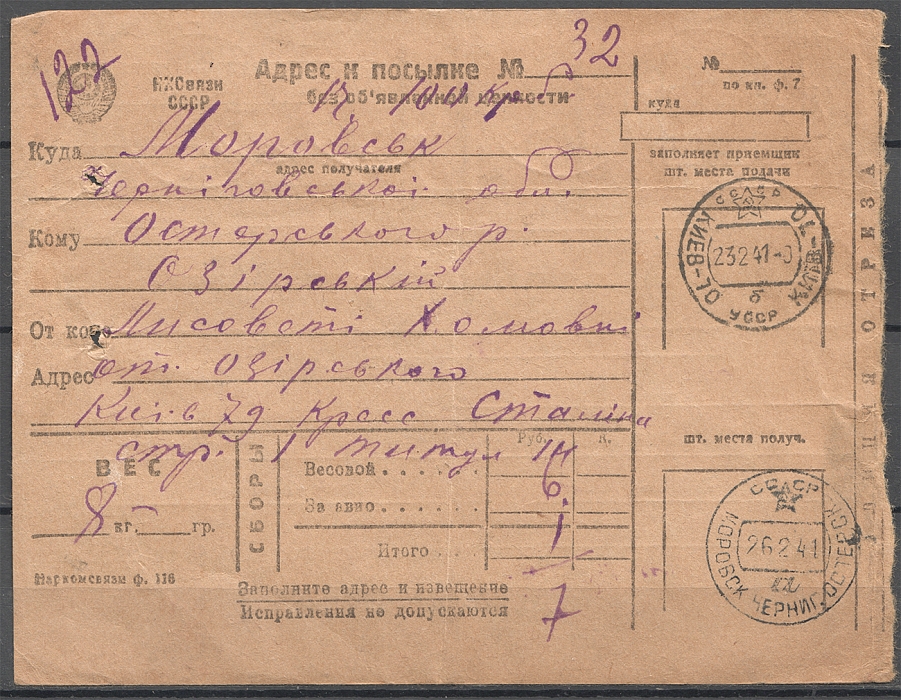 127
НКСвязи
СССР
Адрес к посылке № 32
без об'явленной ценности
100 крб
№
по кл. ф. 7
куда
заполняет приемщик
шт. места подачи
Куда Моровськ
адрес получателя
Чернігівської обл.
Кому Остерського р.
Озірській
От кого Лисоветі Хомовні
Адрес от. Озірського
Київ 79 Кресс Сталіна
стр. 1
СССР
КИЕВ-01 КИЇВ-01
23 2 41
б
УССР
ЛИНИЯ ОТРЕЗА
ВЕС
8 кг. гр.
СБОРЫ
Руб. К.
Весовой 6
За авио 1
Итого
7
Наркомсвязи ф. 116
Заполните адрес и извещение
Исправления не допускаются
шт. места получ.
СССР
МОРОВСК ЧЕРНИГ. ОСТЕРСК
26 2 41